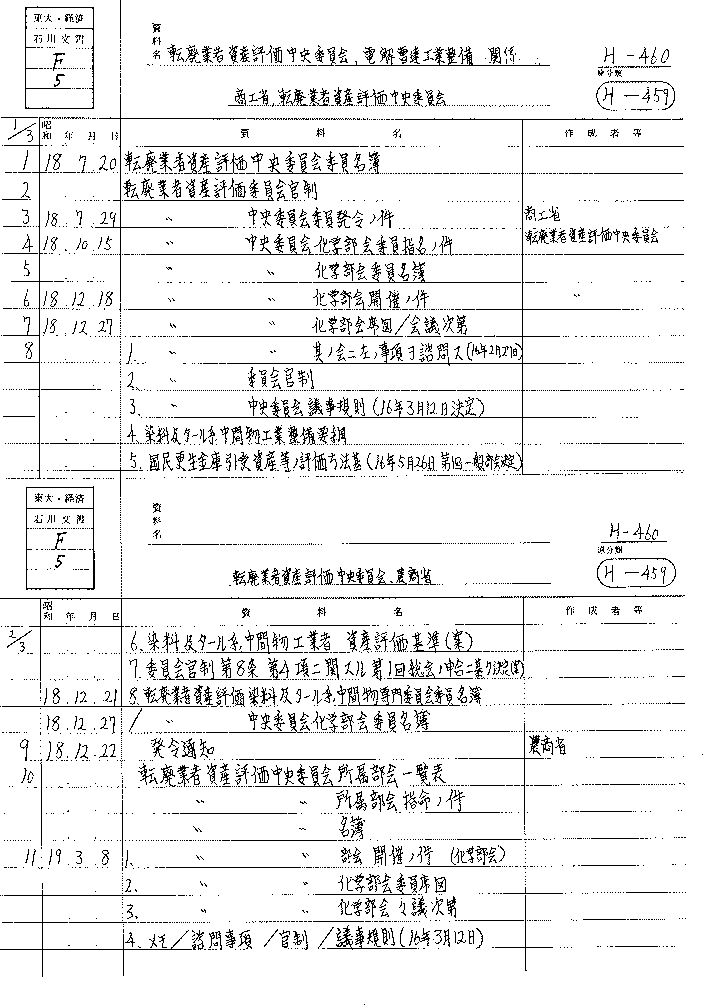 東大・経済
石川文書
F
5
資料名 転廃業者資産評価中央委員会、電解曹達工業整備 関係
H-460
原分類
H-459
商工省、転廃業者資産評価中央委員会
1/3 昭和 年 月 日 資料名 作成者等
1 18 7 20 転廃業者資産評価中央委員会委員名簿
2 転廃業者資産評価委員会官制
3 18.7.29 〃 中央委員会委員発令ノ件 商工省
4 18.10.15 〃 中央委員会化学部会委員指名ノ件 転廃業者資産評価中央委員会
5 〃 〃 化学部会委員名簿
6 18.12.18 〃 〃 化学部会開催ノ件 〃
7 18.12.27 〃 〃 化学部会席図/会議次第
8 1. 〃 〃 其ノ会ニ左ノ事項ヲ諮問ス(16年2月27日)
2. 〃 委員会官制
3. 〃 中央委員会議事規則(16年3月12日決定)
4.染料及タール系中間物工業整備要綱
5.国民更生金庫引受資産等ノ評価方法基(16年5月26日 第1回一般部会決定)
東大・経済
石川文書
F
5
資料名
H-460
原分類
H-459
転廃業者資産評価中央委員会、農商省
2/3 昭和 年 月 日 資料名 作成者等
6.染料及タール系中間物工業者 資産評価基準(案)
7.委員会官制第8条 第4項ニ関スル第1回総会ノ申合ニ基ク決定(案)
18.12.21 8.転廃業者資産評価染料及タール系中間物専門委員会委員名簿
18.12.27 / 〃 中央委員会化学部会委員名簿
9 18.12.22 発令通知 農商省
10 転廃業者資産評価中央委員会所属部会一覧表
〃 〃 所属部会指命ノ件
〃 〃 名簿
11 19 3 8 1. 〃 〃 部会開催ノ件 (化学部会)
2. 〃 〃 化学部会委員席図
3. 〃 〃 化学部会々議次第
4.メモ/諮問事項/官制/議事規則(16年3月12日)